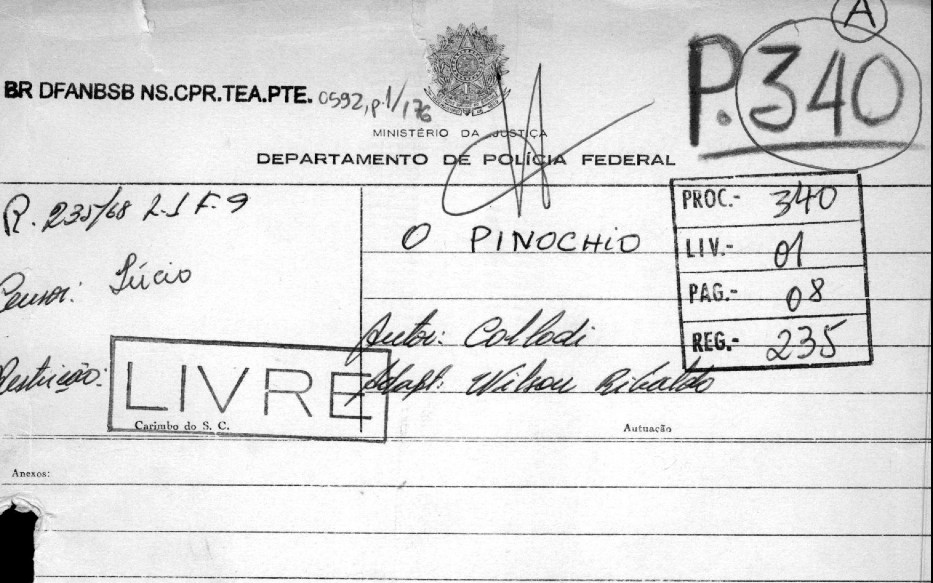 A
P.340
BR DFANBSB NS.CPR.TEA.PTE. 0592, p.1/176
MINISTÉRIO DA JUSTIÇA
DEPARTAMENTO DE POLÍCIA FEDERAL
R. 235/68 L-1 F-9
O PINOCHIO
PROC.- 340
LIV.- 01
PAG.- 08
REG.- 235
Censor: Lúcio
Autor: Collodi
Restrição: LIVRE
Adapt. Wilson
Carimbo do S. C.
Autuação
Anexos: